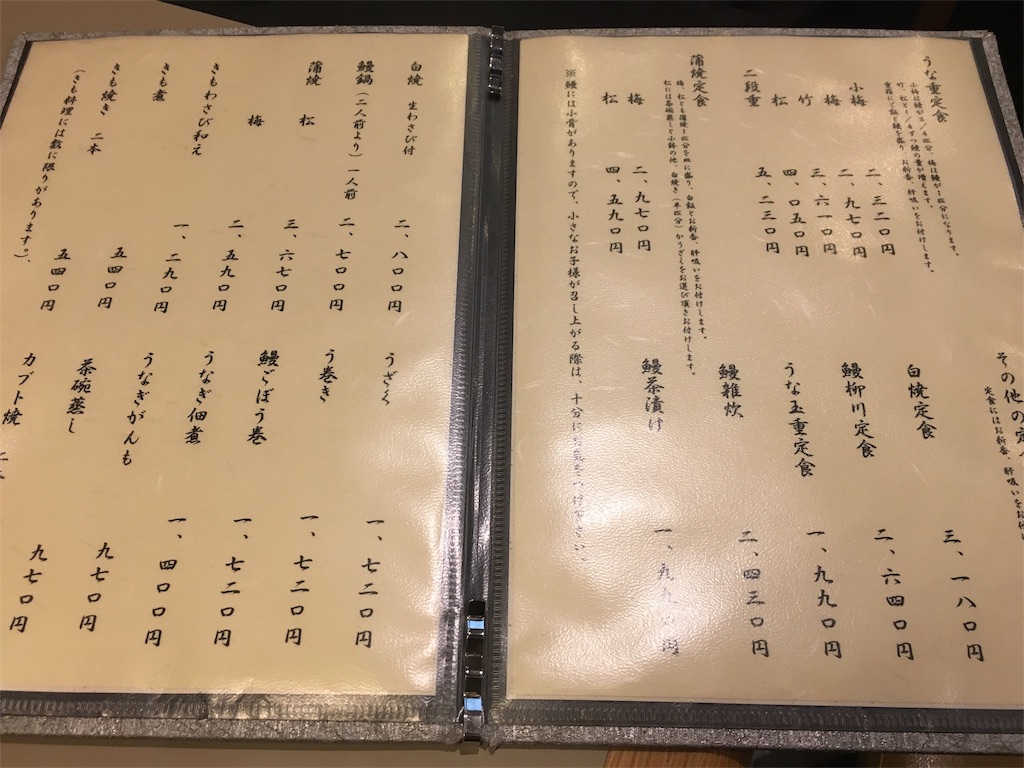 うな重定食
小梅は鰻が3/4匹分、梅は鰻が1匹分になります。
竹、松と1/4ずつ鰻の量が増えます。
重箱にご飯と鰻を盛り、お新香、肝吸いをお付けします。
小梅 二、三二〇円
梅 二、九七〇円
竹 三、六一〇円
松 四、〇五〇円
二段重 五、二三〇円
蒲焼定食
梅、松とも蒲焼1匹分を皿に盛り、白飯とお新香、肝吸いをお付けします。
松には茶碗蒸しと小鉢の他、白焼き(半匹分)かうざくをお選び頂きお付けします。
梅 二、九七〇円
松 四、五九〇円
※鰻には小骨がありますので、小さなお子様が召し上がる際は、十分にお気をつけ下さい。
その他の定
定食にはお新香、肝吸いをお付
白焼定食 三、一八〇円
鰻柳川定食 二、六四〇円
うな玉重定食 一、九九〇円
鰻雑炊 二、四三〇円
鰻茶漬け 一、九九〇円
白焼 生わさび付 二、八〇〇円
鰻鍋(二人前より)一人前 二、七〇〇円
蒲焼 松 三、六七〇円
梅 二、五九〇円
きもわさび和え 一、二九〇円
きも煮 五四〇円
きも焼き 二本 五四〇円
(きも料理には数に限りがあります。)
うざく 一、七二〇円
う巻き 一、七二〇円
鰻ごぼう巻 一、七二〇円
うなぎ佃煮 一、四〇〇円
うなぎがんも 九七〇円
茶碗蒸し 九七〇円
カブト焼 二本